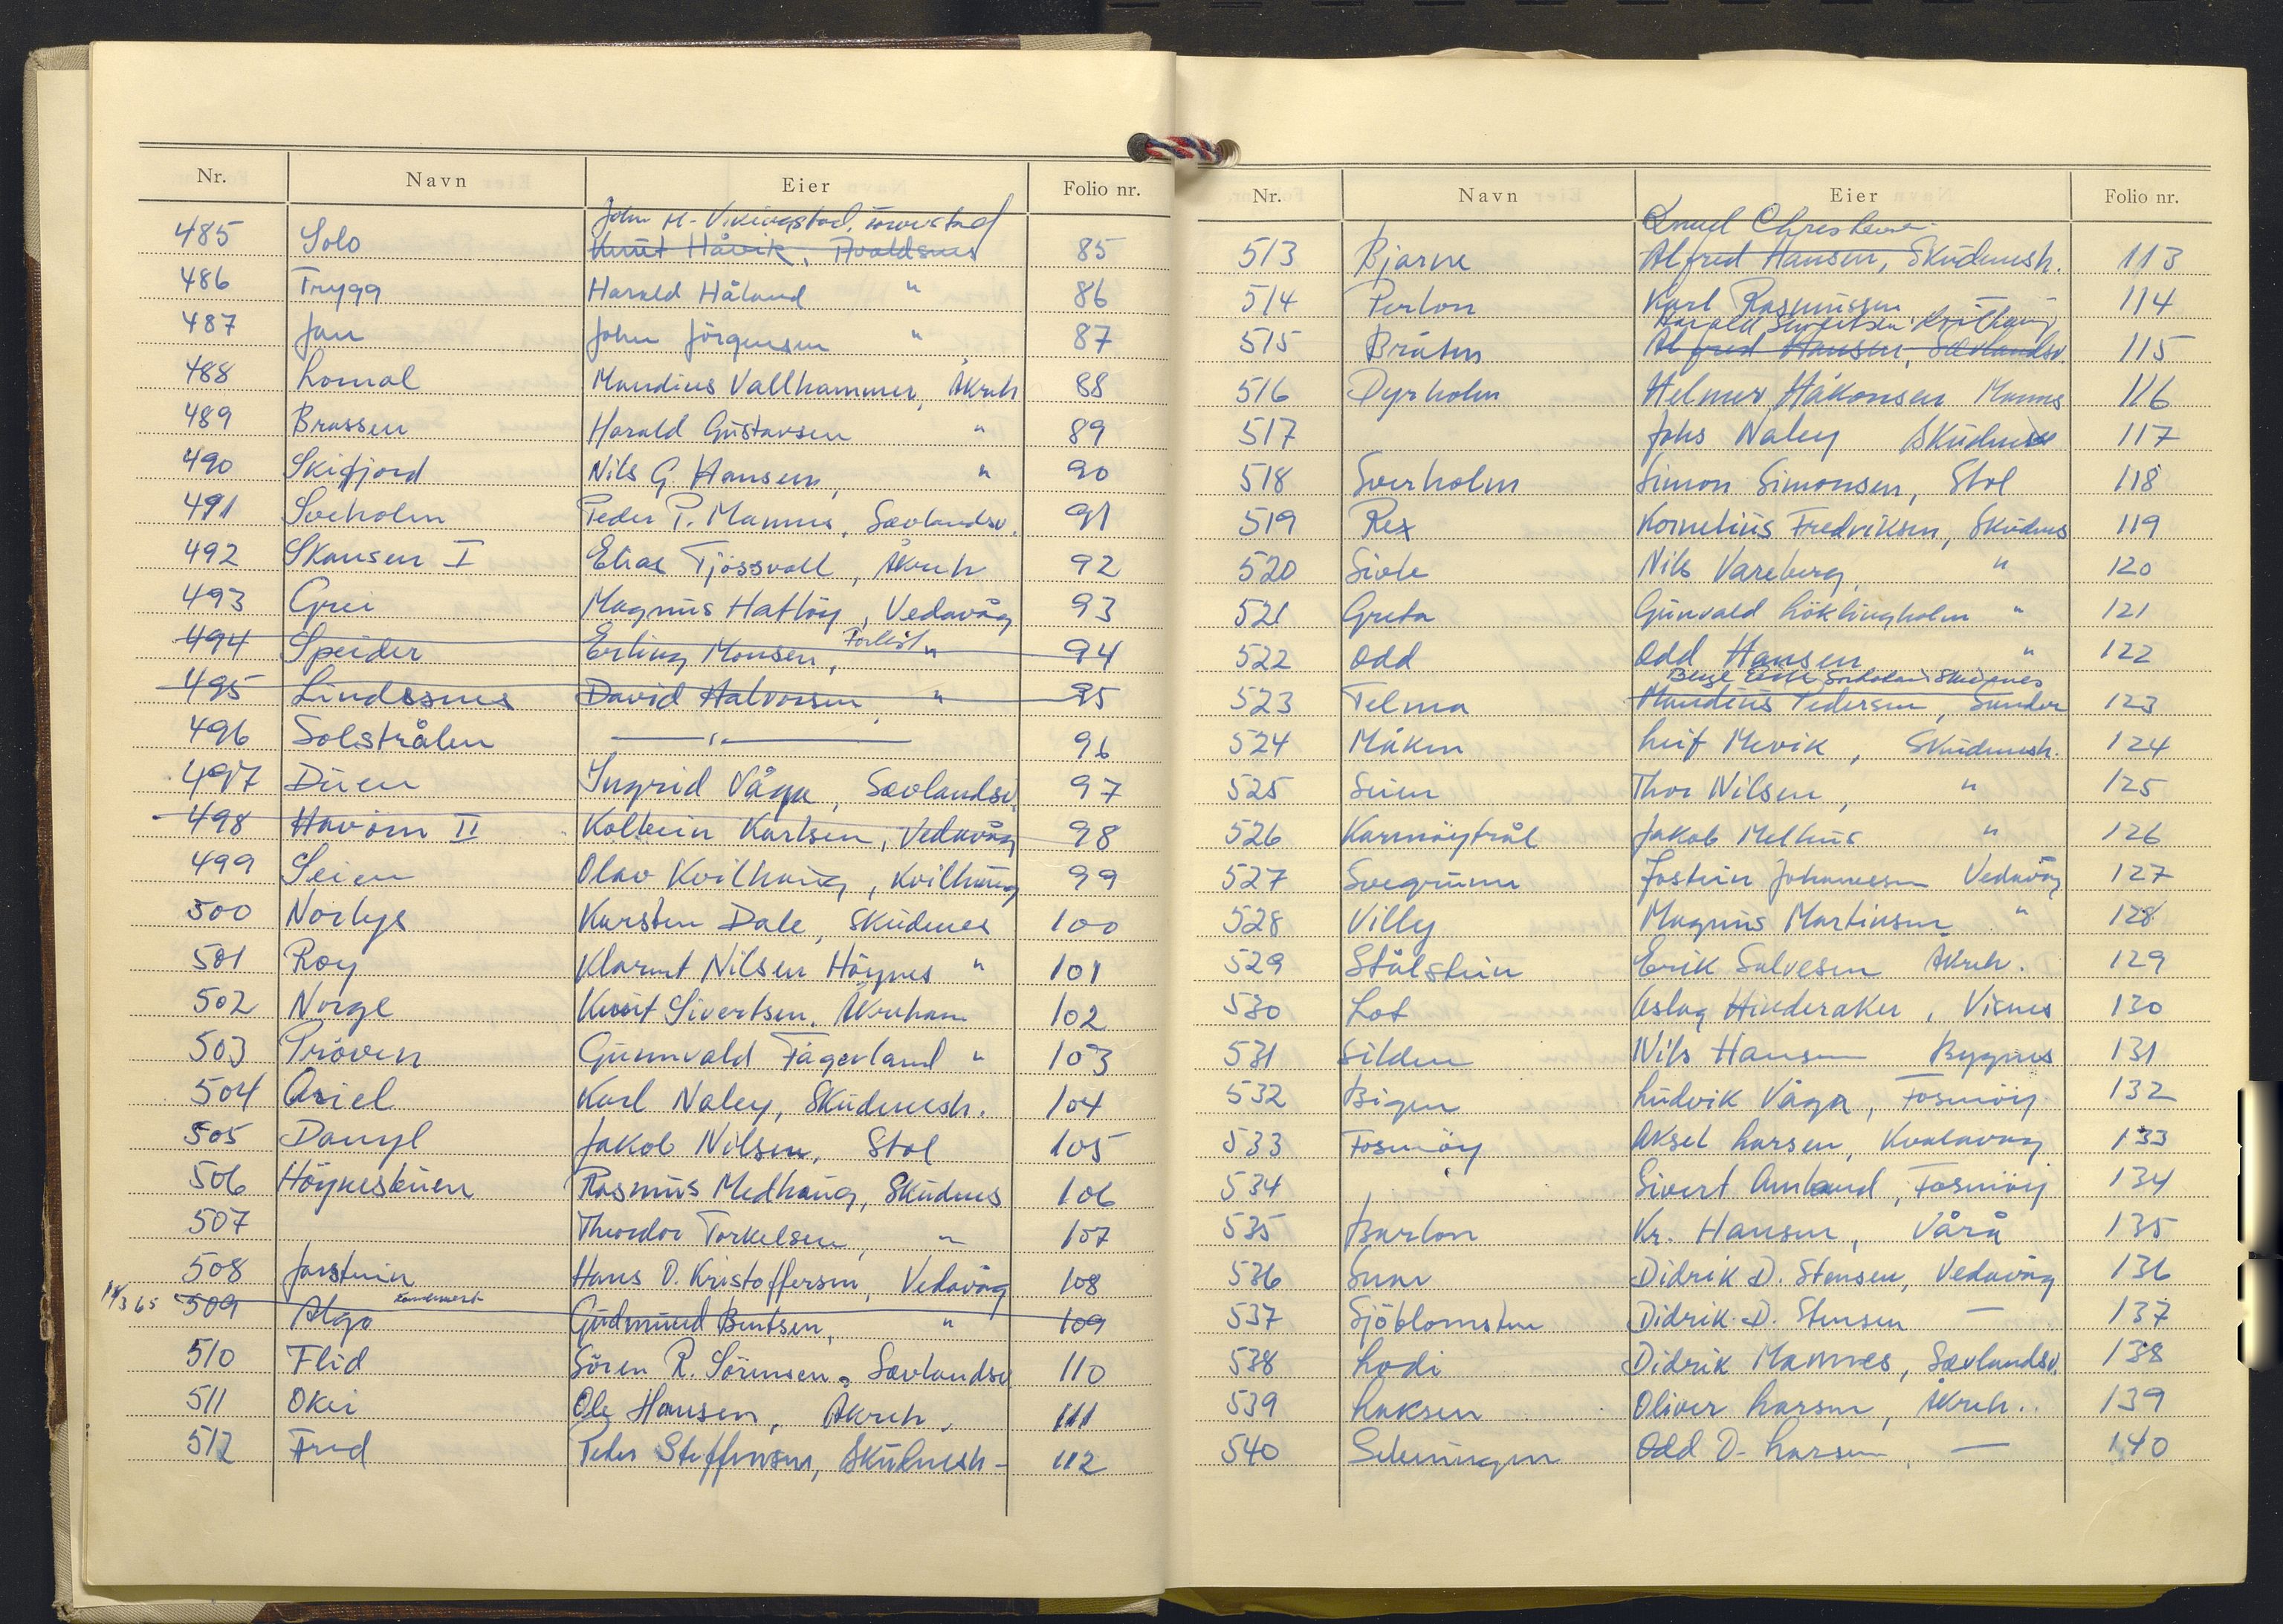 Nr. Navn Eier Folio nr.
John M. Vikingstad, Torvestad
485 Solo Knut Håvik, Avaldsnes 85
486 Trygg Harald Håland " 86
487 Jan John Jörgensen " 87
488 Lomal Mandius Vallhammer, Åkreh 88
489 Brassen Harald Gustavsen " 89
490 Skifjord Nils G. Hansen, " 90
491 Sveholm Peder P. Mannes, Sævlandsv. 91
492 Skansen I Elias Tjössvoll, Åkreh 92
493 Grei Magnus Hatlöy, Vedavåg 93
494 Speider Erling Monsen, Forlist " 94
495 Lindesnes David Halvorsen, " 95
496 Solstrålen —"— 96
497 Duen Ingrid Våga, Sævlandsv. 97
498 Havörn II Kolbein Karlsen, Vedavåg 98
499 Seien Olav Kvilhaug, Kvilhaug 99
500 Norlys Karsten Dale, Skudenes 100
501 Roy Klarent Nilsen Höynes " 101
502 Norge Knut Sivertsen, Åkreham 102
503 Pröven Gunnvald Fagerland " 103
504 Asiel Karl Naley, Skudenesh. 104
505 Danyl Jakob Nilsen, Stol 105
506 Höynesbuen Rasmus Medhaug, Skudenes 106
507 Theodor Torkelsen, " 107
508 Jarstein Hans O. Kristoffersen, Vedavåg 108
11/3 65 509 Alga Kondemnert Gudmund Bentsen, " 109
510 Flid Sören R. Sörensen, Sævlandsv 110
511 Okei Ole Hansen, Åkreh. 111
512 Fred Peder Steffensen, Skudenesh- 112
Nr. Navn Eier Folio nr.
Knud Christensen
513 Bjarne Alfred Hansen, Skudenesh. 113
514 Perlon Karl Rasmussen 114
Harald Sivertsen Kvilhaug
515 Brusen Alfred Hansen, Sævlandsv. 115
516 Dyrholm Helmer Håkonsen Mannes 116
517 Johs Naley Skudenes 117
518 Sverholm Simon Simonsen, Stol 118
519 Rex Kornelius Fredriksen, Skudenes 119
520 Sivle Nils Vareberg, " 120
521 Greta Gunvald Löklingholm " 121
522 Odd Odd Hansen " 122
523 Telma Mandius Pedersen, Sandve 123
524 Måken Leif Mevik, Skudenesh. 124
525 Seien Thor Nilsen, " 125
526 Karmöytrål Jakob Melhus " 126
527 Svegrunn Jostein Johannesen Vedavåg 127
528 Villy Magnus Martinsen " 128
529 Stålstein Erik Salvesen Åkreh. 129
530 Lot Aslag Hinderaker, Visnes 130
531 Silden Nils Hansen Bygnes 131
532 Bigen Ludvik Våga, Fosnöy 132
533 Fosnöy Aksel Larsen, Kvalavåg 133
534 Sivert Amland, Fosnöy 134
535 Barlon Kr. Hansen, Vårå 135
536 Sunn Didrik D. Stensen, Vedavåg 136
537 Sjöblomsten Didrik D. Stensen — 137
538 Lodi Didrik Mannes, Sævlandsv. 138
539 Laksen Oliver Larsen, Åkreh. 139
540 Selungen Odd O. Larsen, — 140